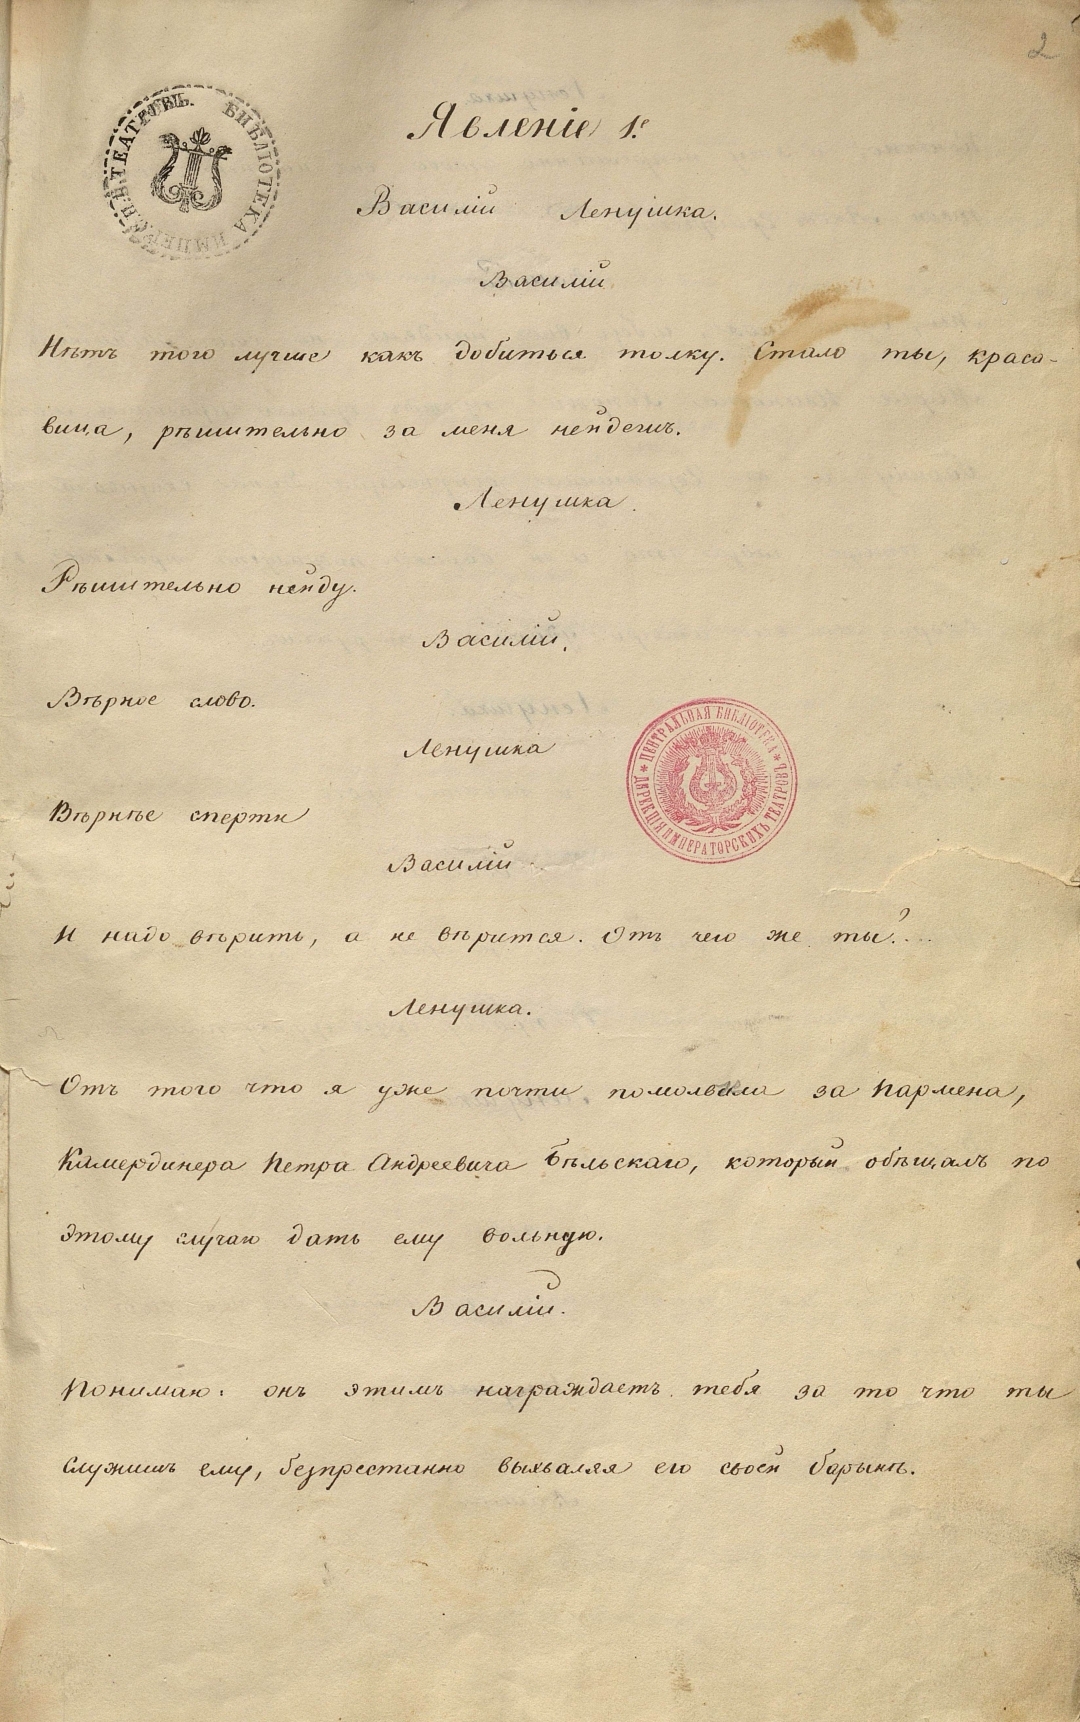 2
Явленіе 1.е
БИБЛІОТЕКА ИМПЕР. С.П.Б. ТЕАТРОВЪ.
Василій Ленушка.
Василій
Нѣтъ того лучше какъ добиться толку. Стало ты, краса-
вица, рѣшительно за меня нейдешь.
Ленушка.
Рѣшительно нейду.
Василій.
Вѣрное слово.
Ленушка
ЦЕНТРАЛЬНАЯ БИБЛІОТЕКА * ДИРЕКЦІЯ ИМПЕРАТОРСКИХЪ ТЕАТРОВЪ *
Вѣрнѣе смерти
Василій
И надо вѣрить, а не вѣрится. Отъ чего же ты?...
Ленушка.
Отъ того что я уже почти помолвлена за Пармена,
Камердинера Петра Андреевича Бѣльскаго, который обѣщалъ по
этому случаю дать ему вольную.
Василій.
Понимаю: онъ этимъ награждаетъ тебя за то что ты
служишь ему, безпрестанно выхваляя его своей барынѣ.